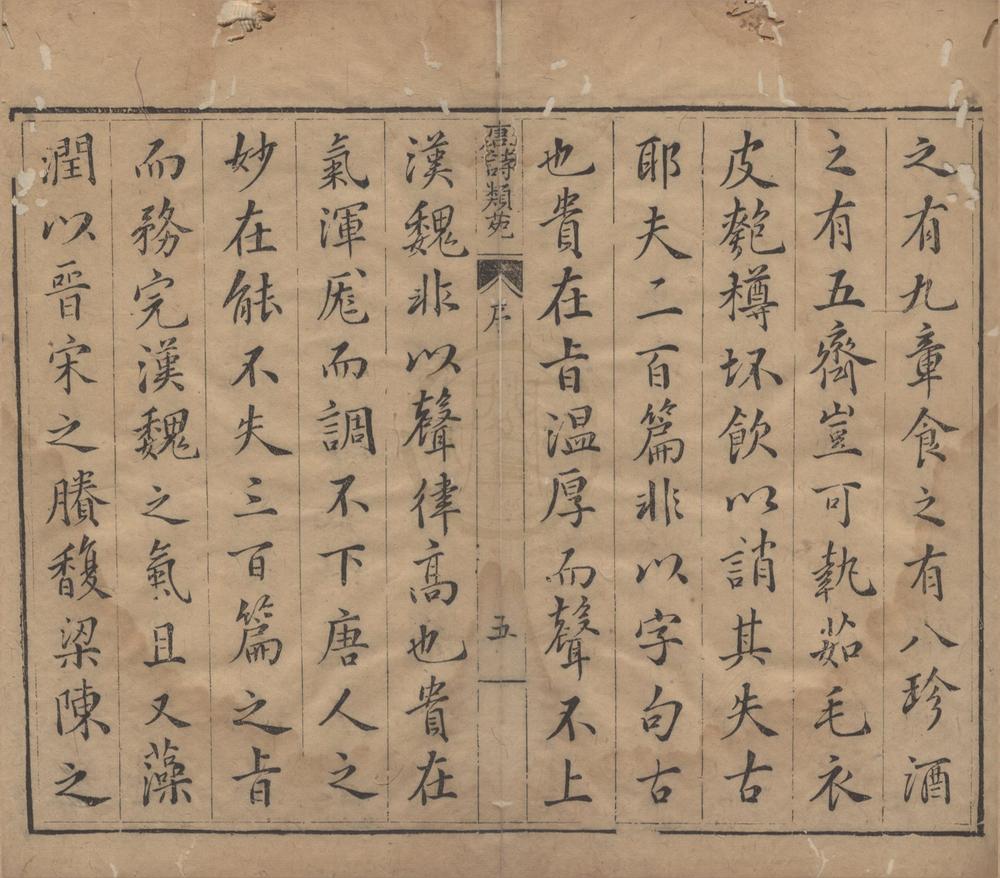 之有九章食之有八珍酒
之有五齊豈可執茹毛衣
皮匏樽坏飲以誚其失古
耶夫二百篇非以字句古
也貴在旨温厚而聲不上
唐詩類苑
序
五
漢魏非以聲律高也貴在
氣渾厖而調不下唐人之
妙在能不失三百篇之旨
而務完漢魏之氣且又藻
潤以晉宋之賸馥梁陳之